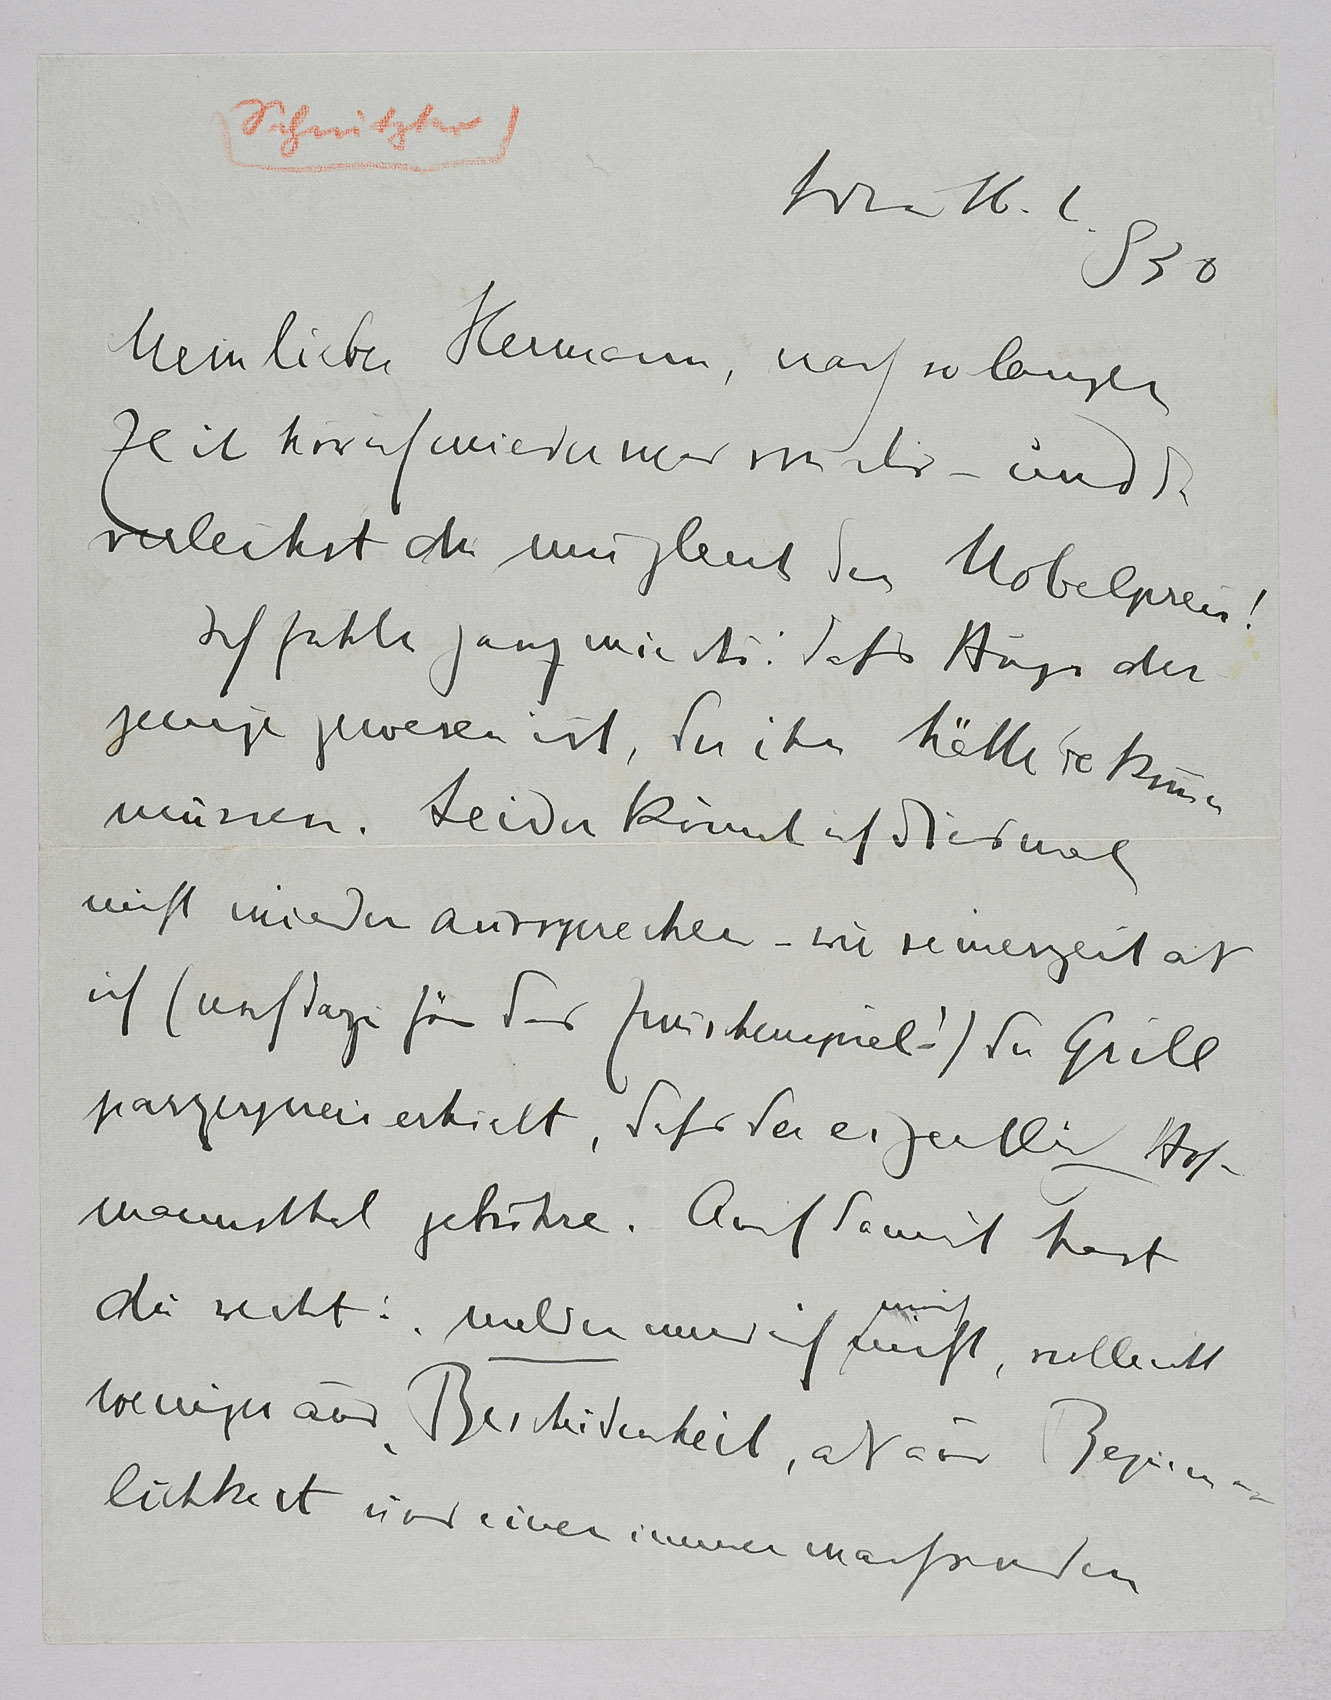 Schnitzler
Wien 16. 1.
930
Mein lieber Hermann, nach so langer
Zeit hör ich wieder was von dir – und da
verleihst du mir gleich den Nobelpreis!
Ich fühle ganz wie du: dass Hugo der-
jenige gewesen ist, der ihn hätte bekommen
müssen. Leider könnt ich diesmal
nicht wieder aussprechen – wie seinerzeit als
ich (noch dazu für das Zwischenspiel!) den Grill
parzerpreis erhielt, dass der eigentlich Hof-
mannsthal gebühre. Auch damit hast
du recht: melden werd ich mich nicht, vielleicht
weniger aus Bescheidenheit, als aus Bequem-
lichkeit und einer immer wachsenden